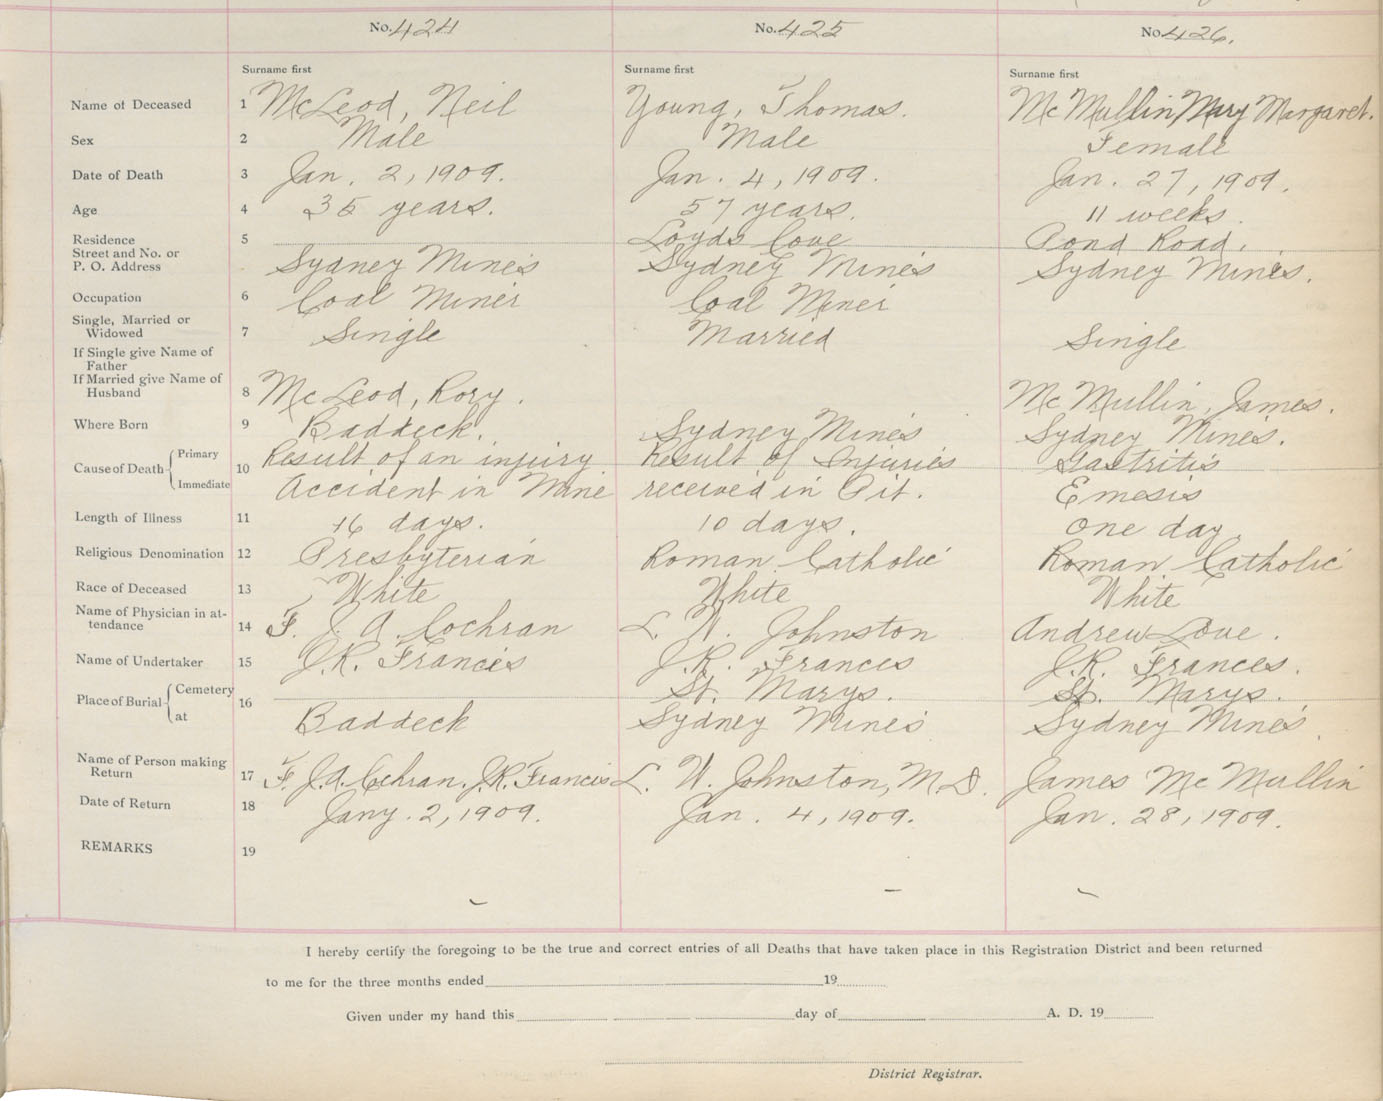 No. 424 No. 425 No. 426.
Surname first Surname first Surname first
Name of Deceased 1 McLeod, Neil Young, Thomas. McMullin Mary Margaret.
Sex 2 Male Male Female
Date of Death 3 Jan. 2, 1909. Jan. 4, 1909. Jan. 27, 1909.
Age 4 35 years. 57 years. 11 weeks.
Residence 5 Loyds Cove Pond Road.
Street and No. or
P. O. Address Sydney Mines Sydney Mines Sydney Mines.
Occupation 6 Coal Miner Coal Miner
Single, Married or
Widowed 7 Single Married Single
If Single give Name of
Father
If Married give Name of
Husband 8 McLeod, Rory. McMullin, James.
Where Born 9 Baddeck. Sydney Mines Sydney Mines.
Cause of Death Primary 10 Result of an injury Result of Injuries Gastritis
Immediate Accident in Mine received in Pit. Emesis
Length of Illness 11 16 days. 10 days. One day
Religious Denomination 12 Presbyterian Roman Catholic Roman Catholic
Race of Deceased 13 White White White
Name of Physician in at-
tendance 14 F. J. A. Cochran L. W. Johnston Andrew Love.
Name of Undertaker 15 J.R. Francis J.R. Frances J.R. Frances.
Place of Burial Cemetery 16 St. Marys. St. Marys.
at Baddeck Sydney Mines Sydney Mines.
Name of Person making
Return 17 F. J.A. Cchran, J.R. Francis L. W. Johnston, M.D. James McMullin
Date of Return 18 Jany. 2, 1909. Jan. 4, 1909. Jan. 28, 1909.
REMARKS 19
I hereby certify the foregoing to be the true and correct entries of all Deaths that have taken place in this Registration District and been returned
to me for the three months ended 19
Given under my hand this day of A. D. 19
District Registrar.